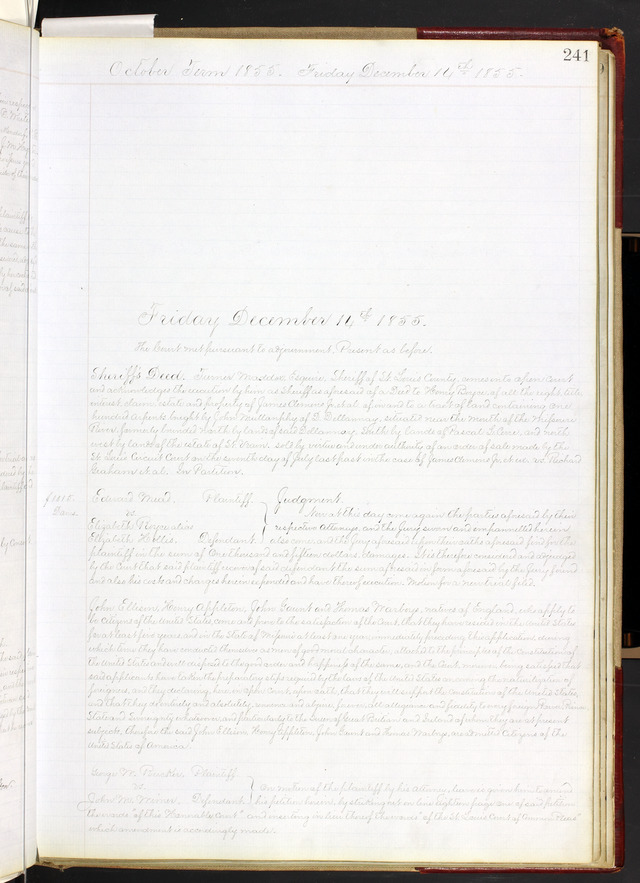 241
October Term 1855. Friday December 14th 1855.
Friday December 14th 1855.
The Court met pursuant to adjournment. Present as before.
Sheriff's Deed. Turner Maddox Esquire, Sheriff of St Louis County, comes into open Court
and acknowledges the execution by him as Sheriff as aforesaid of a Deed to Henry Boyce of all the right title
interest claim estate and property of James Clemens Jr et al of in and to a tract of land containing one
hundred arpents bought by John Mullanphy of situated near the mouth of the Missouri
River, formerly bounded north by lands of South by lands of Pascal L Cerre, and on the
west by lands of the estate of St Vrain, sold by virtue and under authority of an order of sale made by the
St. Louis Circuit Court on the seventh day of July last past in the case of James Clemens Jr et ux vs Richard
Graham et al. In Partition.
$1015
Dams.
Edward Mead, Plaintiff
vs
Elizabeth Boyce alias
Elizabeth Hollis. Defendant
Judgment.
Now at this day come again the parties aforesaid by their
respective Attorneys, and the Jury sworn and empannelled herein
also come, and the Jury aforesaid upon their oaths aforesaid find for the
plaintiff in the sum of One thousand and fifteen dollars damages. It is therefore considered and adjudged
by the Court that said plaintiff recover of said defendant the sum aforesaid in form aforesaid by the Jury found
and also his costs and charges herein expended and have thereof execution. Motion for a new trial filed.
John Ellison, Henry Appleton, John Gaunt and Thomas natives of England, who apply to
be citizens of the United States, come and prove to the satisfaction of the Court, that they have resided in the United States
for at least five years and in the State of Missouri at least one year, immediately preceding this application, during
which time they have conducted themselves as men of good moral character, attached to the principles of the Constitution of
the United States and well disposed to the good order and happiness of the same, and the Court moreover, being satisfied that
said applicants have taken the preparatory steps required by the laws of the United States concerning the naturalization of
foreigners, and they declaring here in open Court, upon oath, that they will support the Constitution of the United States,
and that they do absolutely and entirely renounce and abjure forever, all allegiance and fidelity to every foreign Power, Prince
State and Sovereignty whatsoever and particularly to the Queen of Great Britain and Ireland of whom they are at present
subjects, therefore the said John Ellison, Henry Appleton, John Gaunt and Thomas are admitted Citizens of the
United States of America.
George W. Plaintiff
vs
John M. Wimer, Defendant
On motion of the plaintiff by his Attorney, leave is given him to amend
his petition herein, by striking out on line eighteen page one of said petition
the words "of this Honorable Court" and inserting in lieu thereof the words "of the St. Louis Court of Common Pleas"
which amendment is accordingly made.